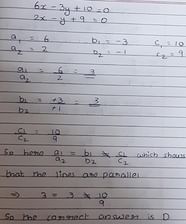 6x - 3y + 10 = 0
2x - y + 9 = 0
a₁ = 6 b₁ = -3 c₁ = 10
a₂ = 2 b₂ = -1 c₂ = 9
a₁/a₂ = 6/2 = 3
b₁/b₂ = +3/+1 = 3
c₁/c₂ = 10/9
So here a₁/a₂ = b₁/b₂ ≠ c₁/c₂ which shows
that the lines are parallel
⇒ 3 = 3 ≠ 10/9
So the correct answer is D